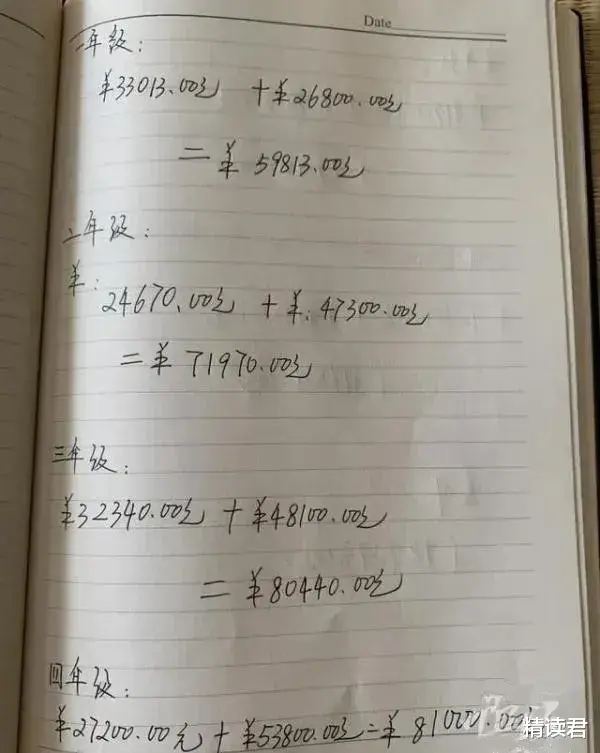 Date
一年级:
¥33013.00元 +¥26800.00元
=¥ 59813.00元
二年级:
¥:24670.00元 +¥:47300.00元
=¥ 71970.00元
三年级:
¥32340.00元 +¥48100.00元
=¥80440.00元
四年级:
¥27200.00元+¥53800.00元=¥81000.00元
精读君